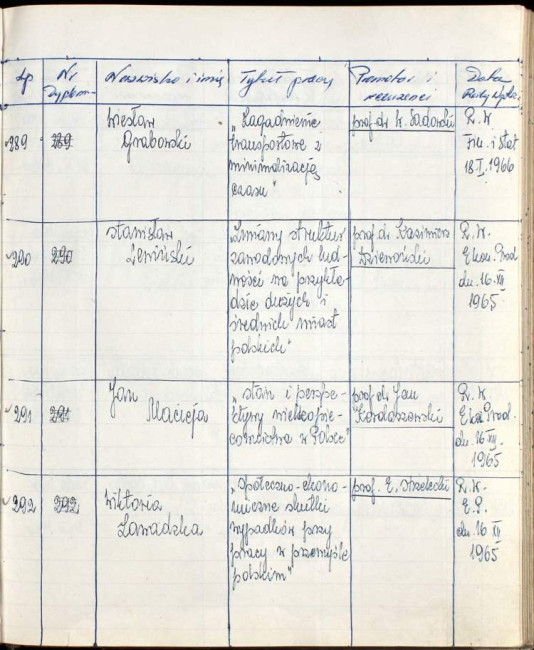 Lp
Nr
Dyplom.
Nazwisko i imię
Tytuł pracy
Promotor i
recenzenci
Data
Rady Wydz.
289
289
Wiesław
Grabowski
„Zagadnienie
transportowe z
minimalizacją
czasu"
prof. dr W. Sadowski
R. W.
Fin. i Stat
18.I.1966
290
290
Stanisław
„Zmiany struktur
zawodowych lud-
ności na przykła-
dzie dużych i
średnich miast
polskich"
prof. dr Kazimierz
Dziewoński
R. W.
Ekon. Prod.
dn. 16.XII
1965
291
291
Jan
Macieja
„Stan i perspe-
ktywy wielkopie-
cownictwa w Polsce"
prof. dr Jan
Kordaszewski
R. W.
Ekon. Prod.
dn. 16.XII.
1965
292
292
Wiktoria
Zawadzka
„Społeczno-ekono-
miczne skutki
wypadków przy
pracy w przemyśle
polskim"
prof. E. Strzelecki
R. W.
E.P.
dn. 16 XII
1965